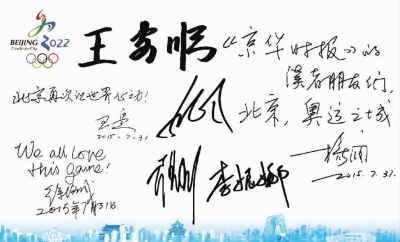 BEIJING 2022
Candidate City
王安顺
《京华时报》的
读者朋友们,
北京,奥运之城
杨澜
2015.7.31.
北京再次让世界心动!
2015.7.31
We all love
this game!
2015年7月31日